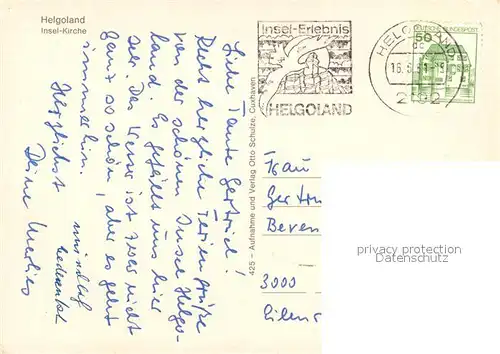 Helgoland
Insel-Kirche
Insel-Erlebnis
HELGOLAND
HELGOLAND
16.8.
2192
50
DEUTSCHE BUNDESPOST
Liebe Tante Gertrud!
Recht herzliche Feriengrüße
von der schönen Insel Helgo-
land. Es gefällt uns hier
sehr. Das Wetter ist zwar nicht
ganz so schön, aber es geht
immerhin.
Herzlichst
Deine
425 - Aufnahme und Verlag Otto Schulze, Cuxhaven
Frau
Gertru
Beven
3000
privacy protection
Datenschutz